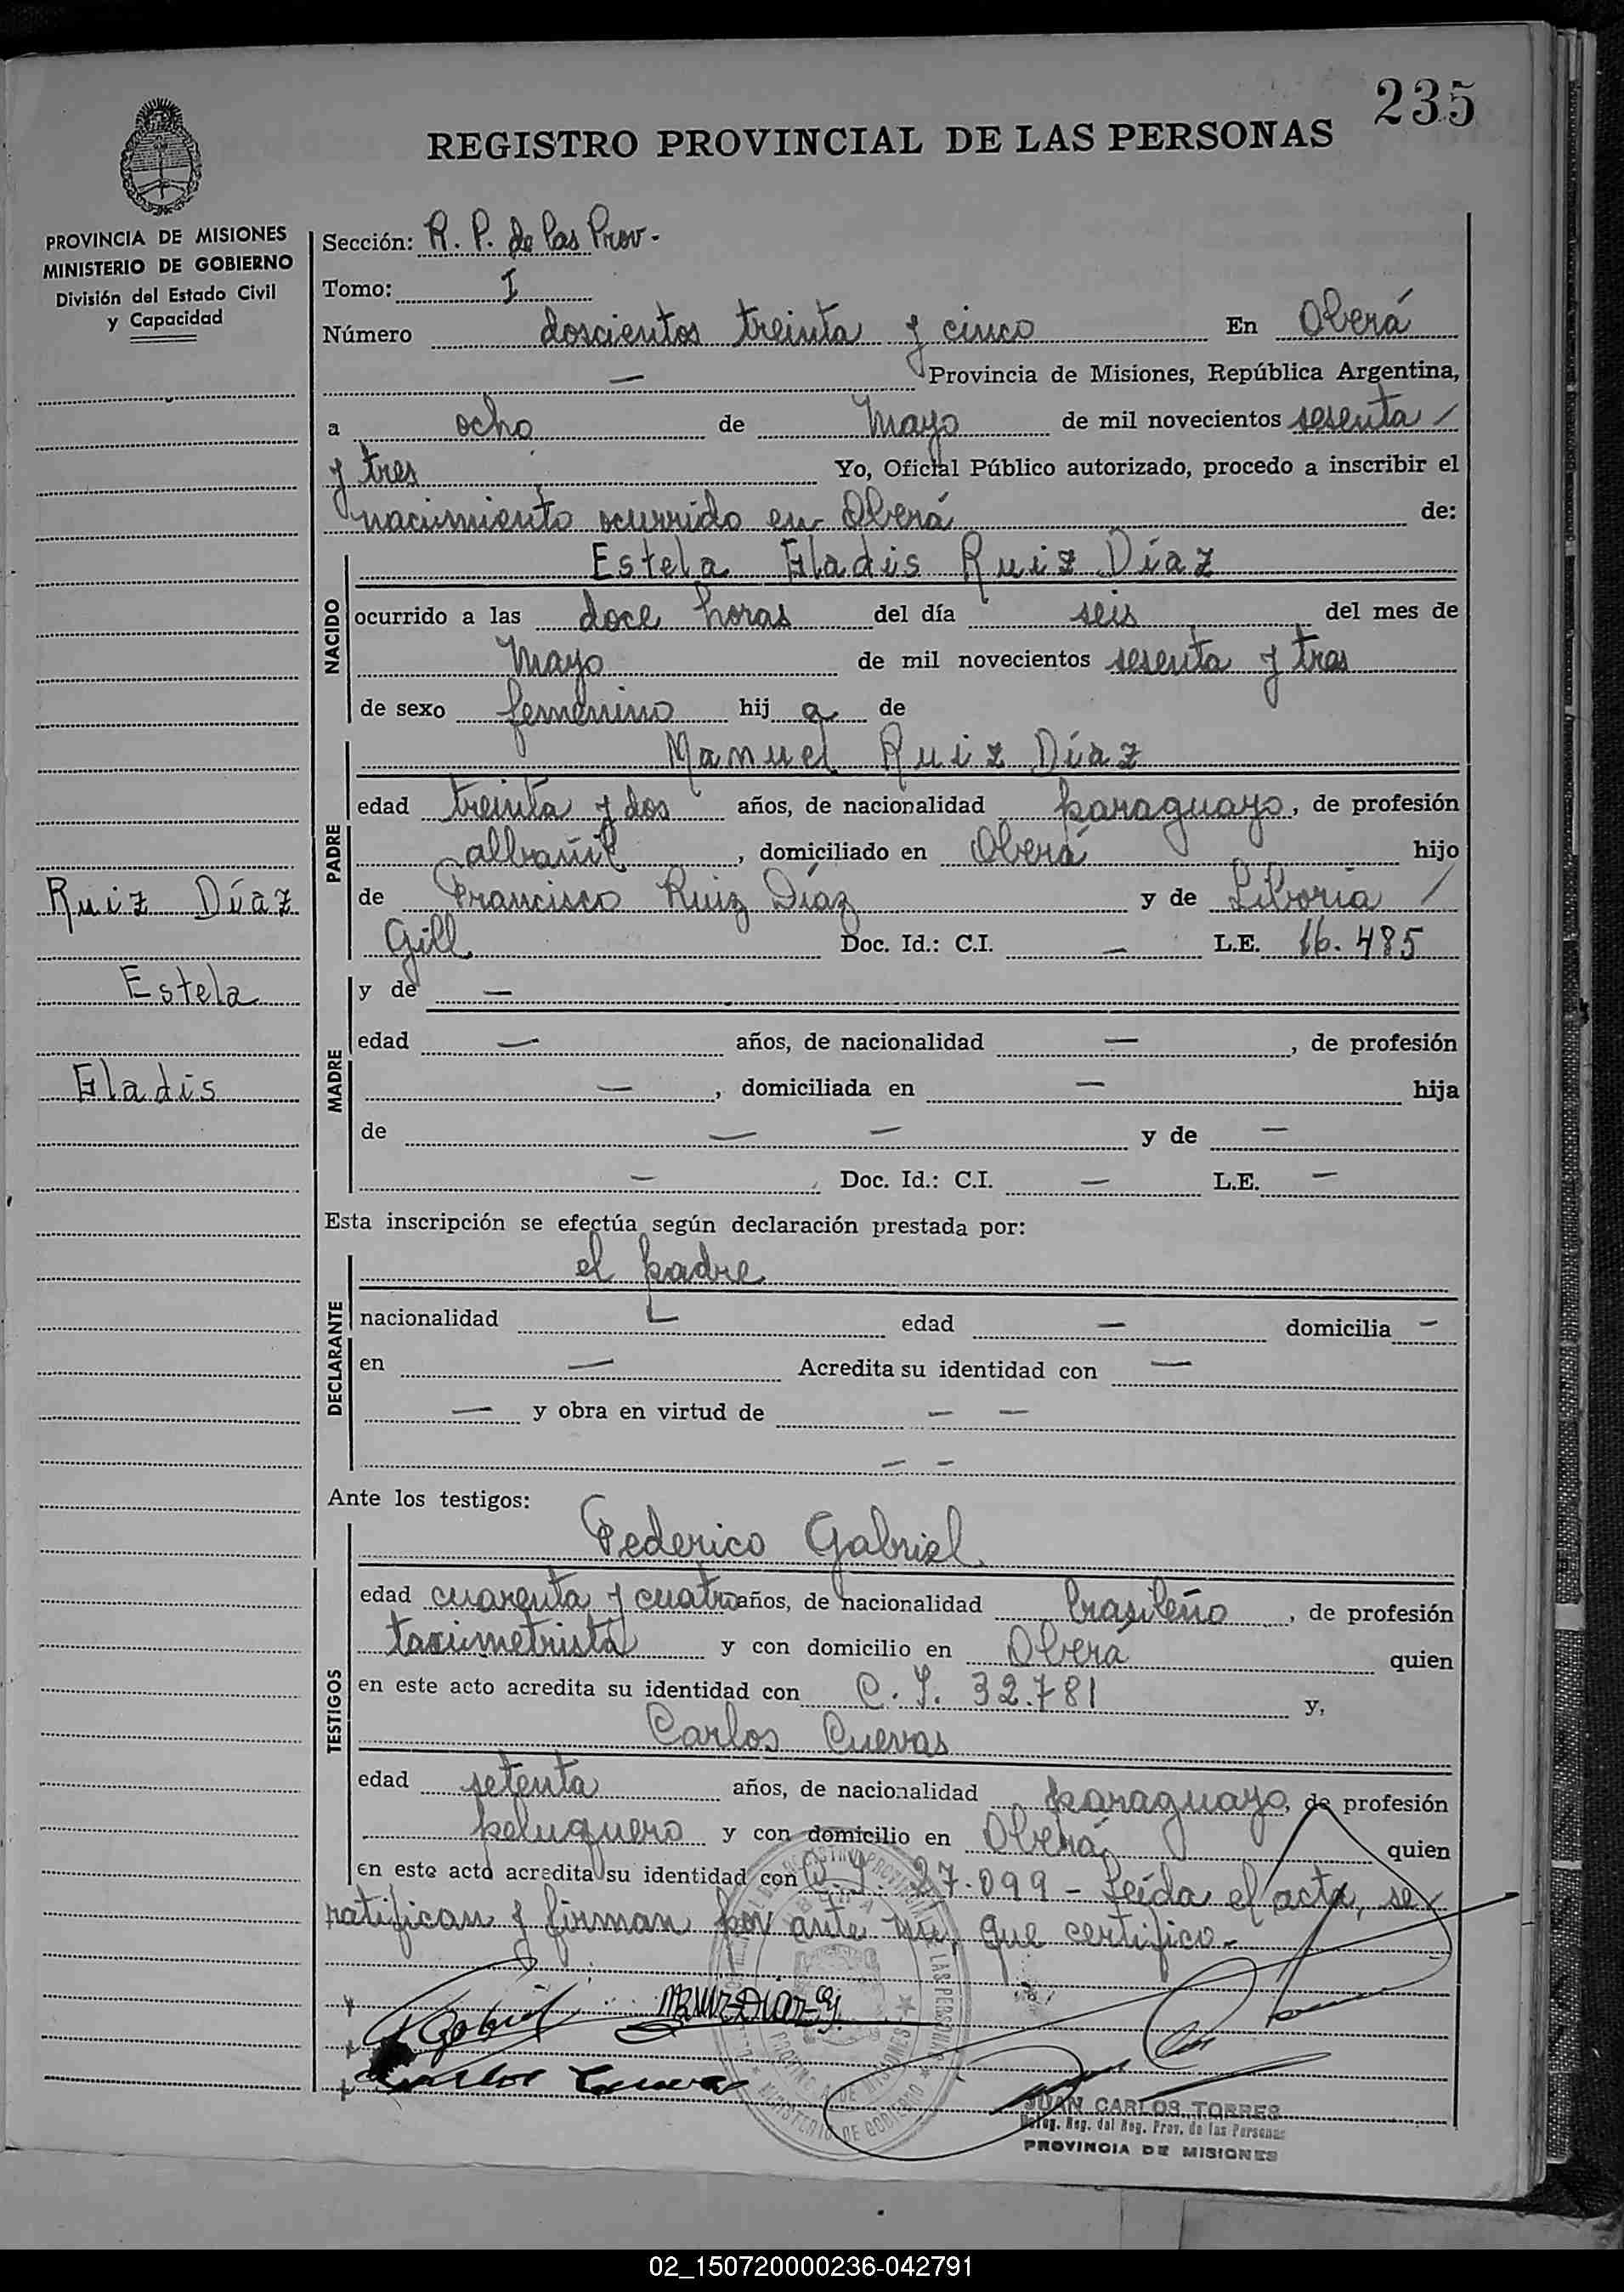 235
REGISTRO PROVINCIAL DE LAS PERSONAS
PROVINCIA DE MISIONES
MINISTERIO DE GOBIERNO
División del Estado Civil
y Capacidad
Sección: R. P. de las Prov.-
Tomo: I
Número doscientos treinta y cinco En Oberá
— Provincia de Misiones, República Argentina,
a ocho de Mayo de mil novecientos sesenta /
y tres Yo, Oficial Público autorizado, procedo a inscribir el
nacimiento ocurrido en Oberá de:
NACIDO
Estela Gladis Ruiz Díaz
ocurrido a las doce horas del día seis del mes de
Mayo de mil novecientos sesenta y tres
de sexo femenino hij a de
PADRE
Manuel Ruiz Díaz
edad treinta y dos años, de nacionalidad paraguayo, de profesión
albañil, domiciliado en Oberá hijo
de Francisco Ruiz Díaz y de Liboria /
Gill Doc. Id.: C.I. — L.E. 16.485
Ruiz Díaz
Estela
Gladis
MADRE
y de —
edad — años, de nacionalidad —, de profesión
—, domiciliada en — hija
de — — y de —
— Doc. Id.: C.I. — L.E. —
Esta inscripción se efectúa según declaración prestada por:
DECLARANTE
el padre
nacionalidad — edad — domicilia —
en — Acredita su identidad con —
— y obra en virtud de — —
— —
Ante los testigos:
TESTIGOS
Federico Gabriel
edad cuarenta y cuatro años, de nacionalidad brasileño, de profesión
taximetrista y con domicilio en Oberá quien
en este acto acredita su identidad con C. I. 32.781 y,
Carlos Cuevas
edad setenta años, de nacionalidad paraguayo, de profesión
peluquero y con domicilio en Oberá quien
en este acto acredita su identidad con C. I. 27.099 - Leída el acta, se
ratifican y firman por ante mí, que certifico.-
Carlos Cuevas
JUAN CARLOS TORRES
Deleg. Reg. del Reg. Prov. de las Personas
PROVINCIA DE MISIONES
02_150720000236-042791